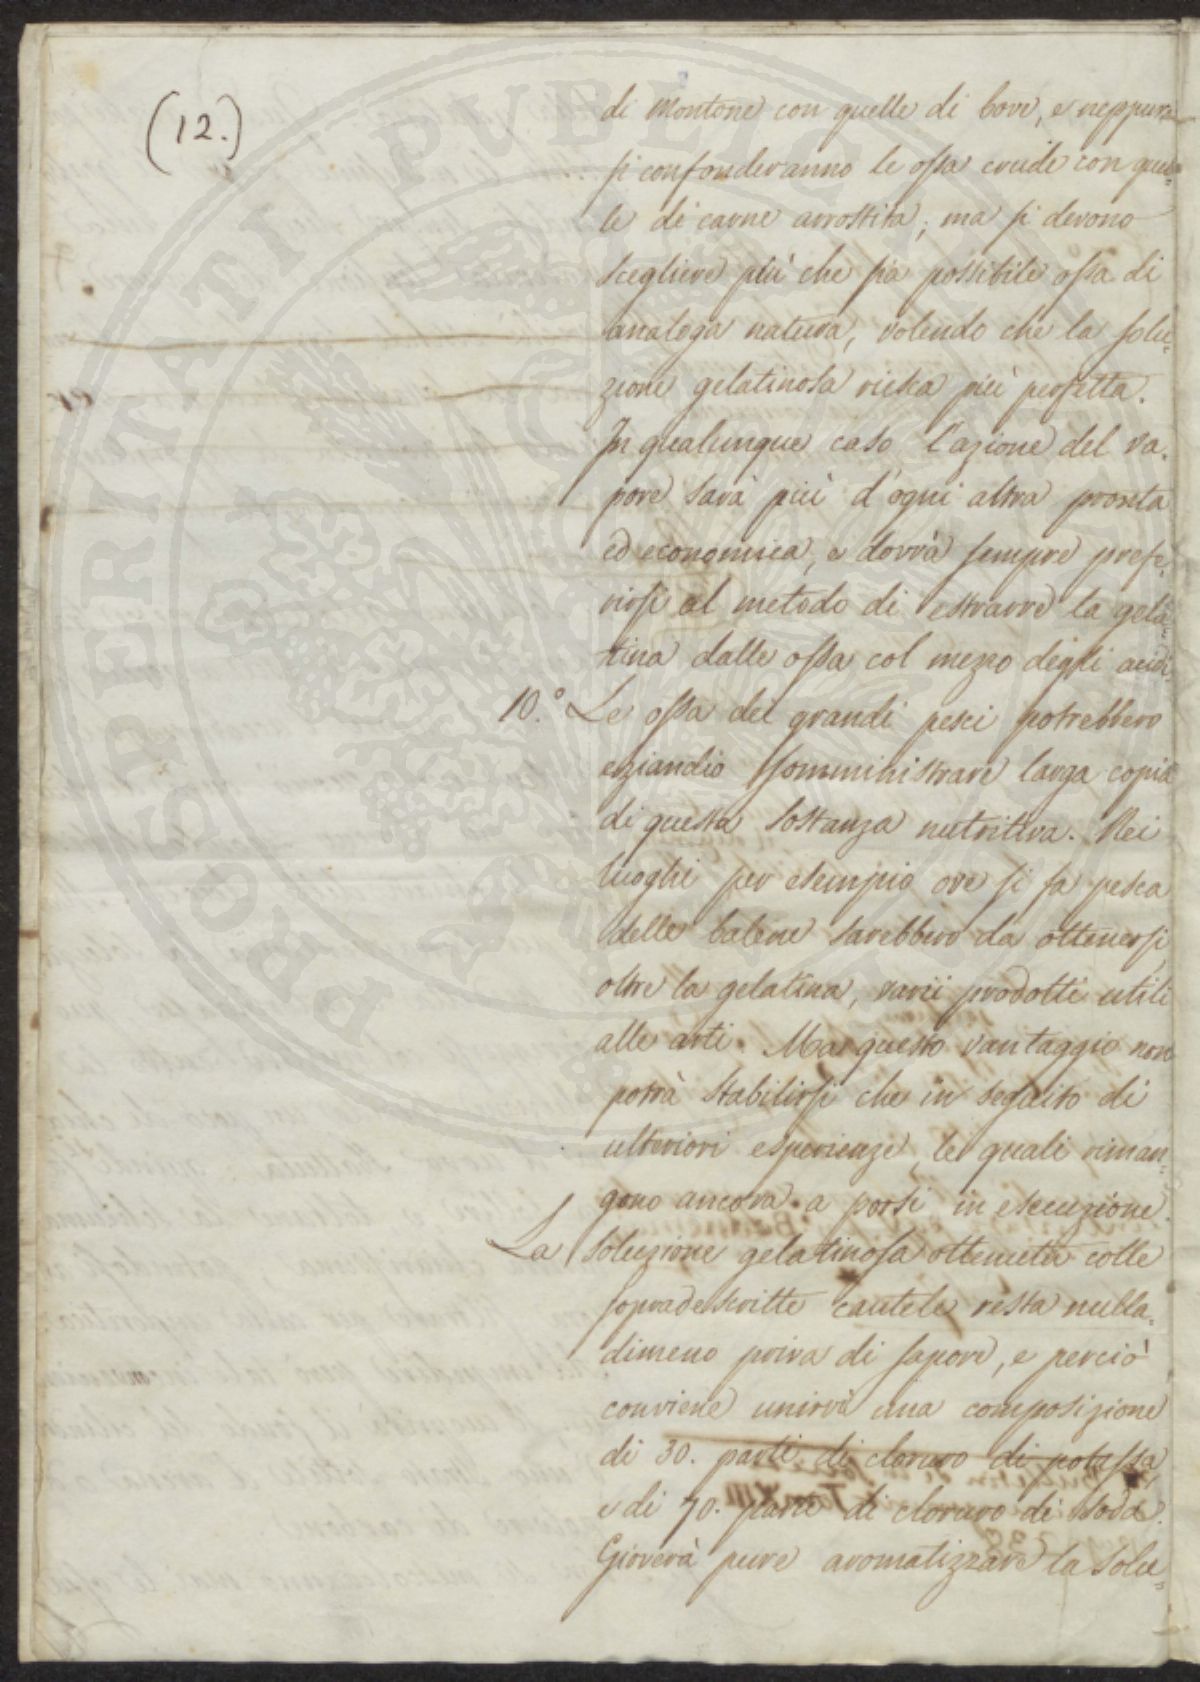 (12.)
di Montone con quelle di bove, e neppure
si confonderanno le ossa crude con quel=
le di carne arrostita; ma si devono
scegliere più che sia possibile ossa di
analoga natura, volendo che la solu=
zione gelatinosa riesca più perfetta.
In qualunque caso l'azione del va=
pore sarà più d'ogni altra pronta
ed economica, e dovrà sempre prefe=
rirsi al metodo di estrarre la gela=
tina dalle ossa col mezzo degli acidi.
10.° Le ossa dei grandi pesci potrebbero
eziandio somministrare larga copia
di questa sostanza nutritiva. Nei
luoghi per esempio ove si fa pesca
delle balene sarebbero da ottenersi,
oltre la gelatina, varii prodotti utili
alle arti. Ma questo vantaggio non
potrà stabilirsi che in seguito di
ulteriori esperienze, le quali riman=
gono ancora a porsi in esecuzione.
La soluzione gelatinosa ottenuta colle
sopradescritte cautele resta nulla=
dimeno priva di sapore, e perciò
conviene unirvi una composizione
di 30. parti di cloruro di potassa,
e di 70. parti di cloruro di soda.
Gioverà pure aromatizzare la solu=
PROSPERITATI PUBLICAE